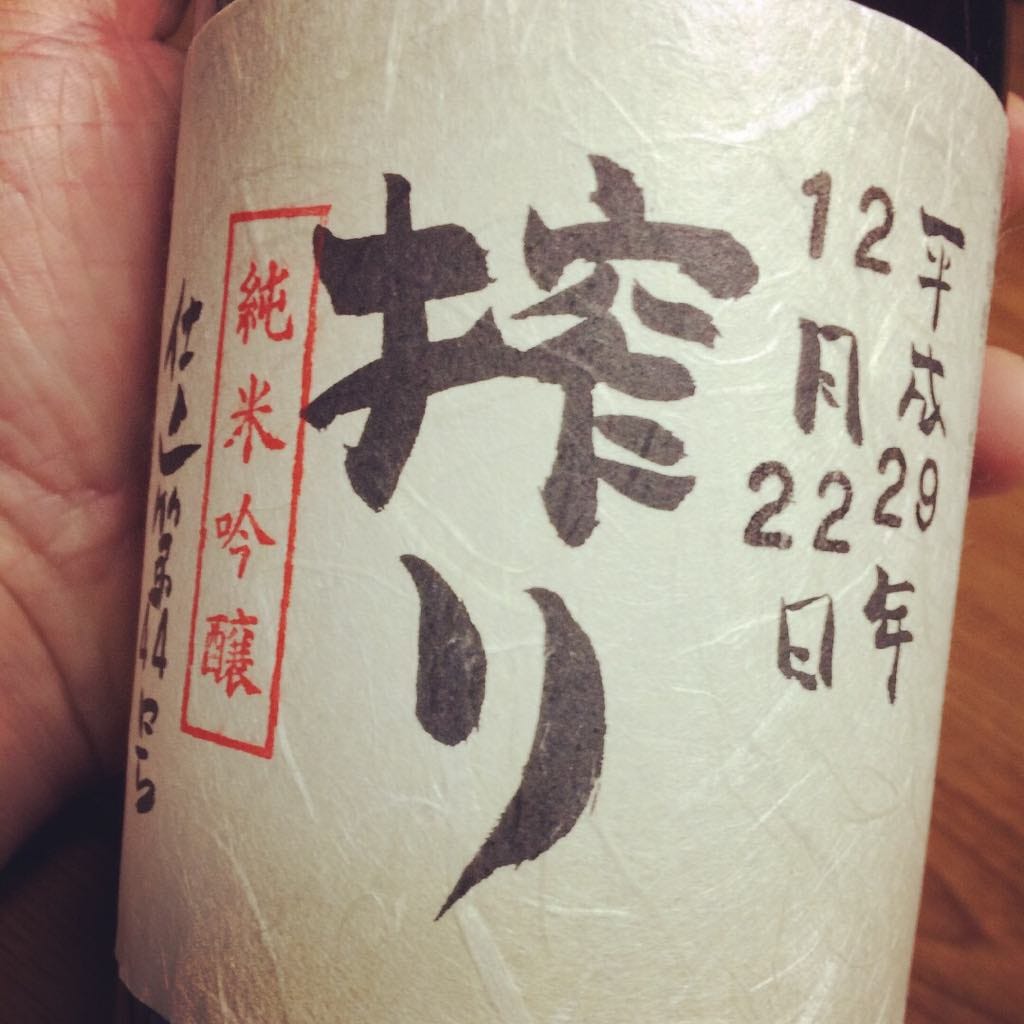 平成29年
12月22日
搾り
純米吟醸
仕込第44号